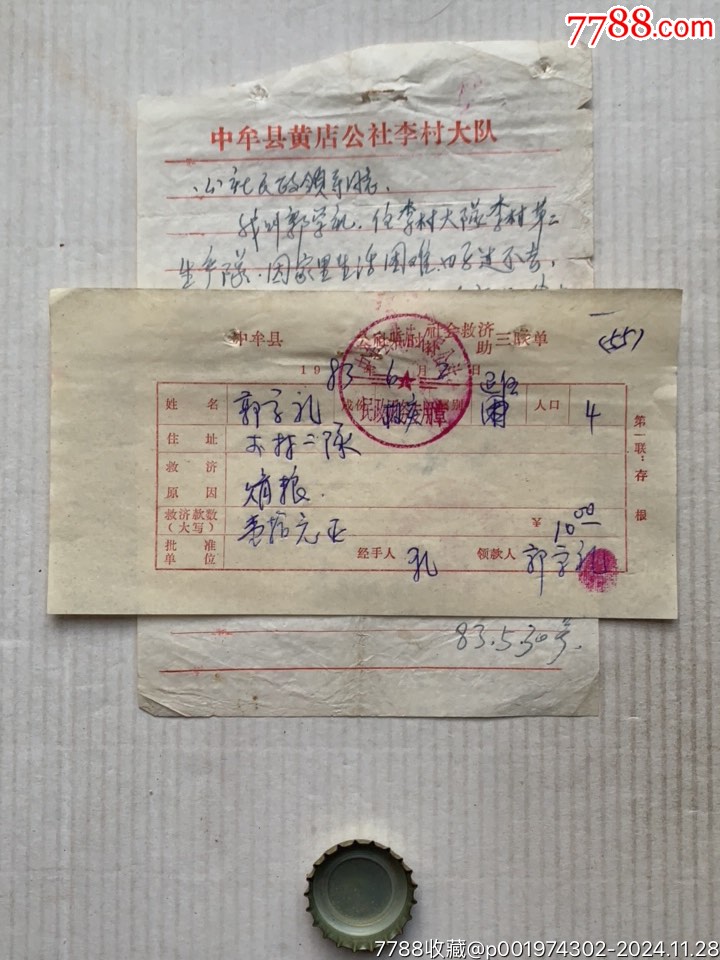 7788.com
中牟县黄店公社李村大队
公社民政领导同志.
我叫郭学礼.住李村大队李村第二
生产队.因家里生活困难.
中牟县 社会救济 三联单
(55)
1983年6月 日
姓名 郭学礼 成份 人口 4
住址 李村二队
救济原因 烧粮.
救济款数(大写) 壹拾元正 ¥10.00
批准单位 经手人 孔 领款人 郭学礼
第一联:存根
83.5.30号.
7788收藏@p001974302-2024.11.28